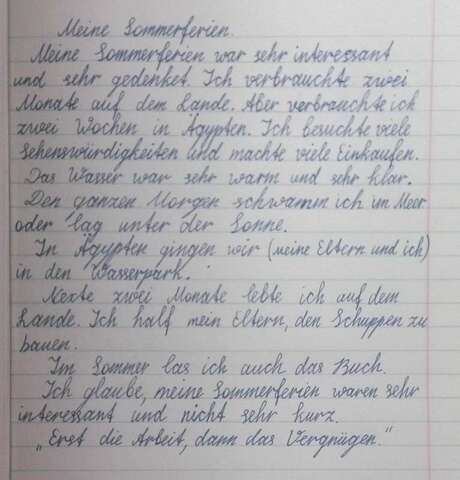 Meine Sommerferien.
Meine Sommerferien war sehr interessant
und sehr gedenket. Ich verbrauchte zwei
Monate auf dem Lande. Aber verbrauchte ich
zwei Wochen in Ägypten. Ich besuchte viele
Sehenswürdigkeiten und machte viele Einkaufen.
Das Wasser war sehr warm und sehr klar.
Den ganzen Morgen schwamm ich im Meer
oder lag unter der Sonne.
In Ägypten gingen wir (meine Eltern und ich)
in den Wasserpark.
Nexte zwei Monate lebte ich auf dem
Lande. Ich half mein Eltern, den Schuppen zu
bauen.
Im Sommer las ich auch das Buch.
Ich glaube, meine Sommerferien waren sehr
interessant und nicht sehr kurz.
„Erst die Arbeit, dann das Vergnügen."